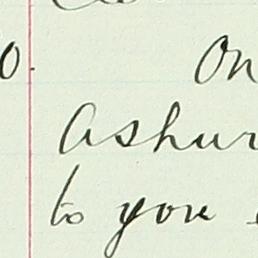 0. On
Ashur
to you